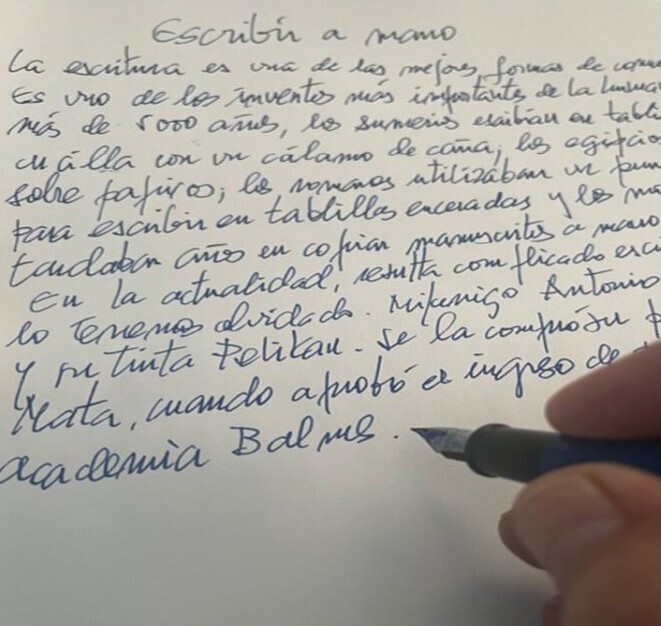 Escribir a mano
La escritura es una de las mejores formas de
Es uno de los inventos más importantes de la
más de 5000 años, los sumerios escribían en
cuálla con un cálamo de caña; los
sobre papiros; los romanos utilizaban un
para escribir en tablillas enceradas y los
tardaban años en copiar manuscritos a mano
En la actualidad, resulta complicado
lo tenemos olvidado. Mi amigo Antonio
y su tinta Pelikan. Se la compró su
Mata, cuando aprobó el ingreso de
academia Balmes.